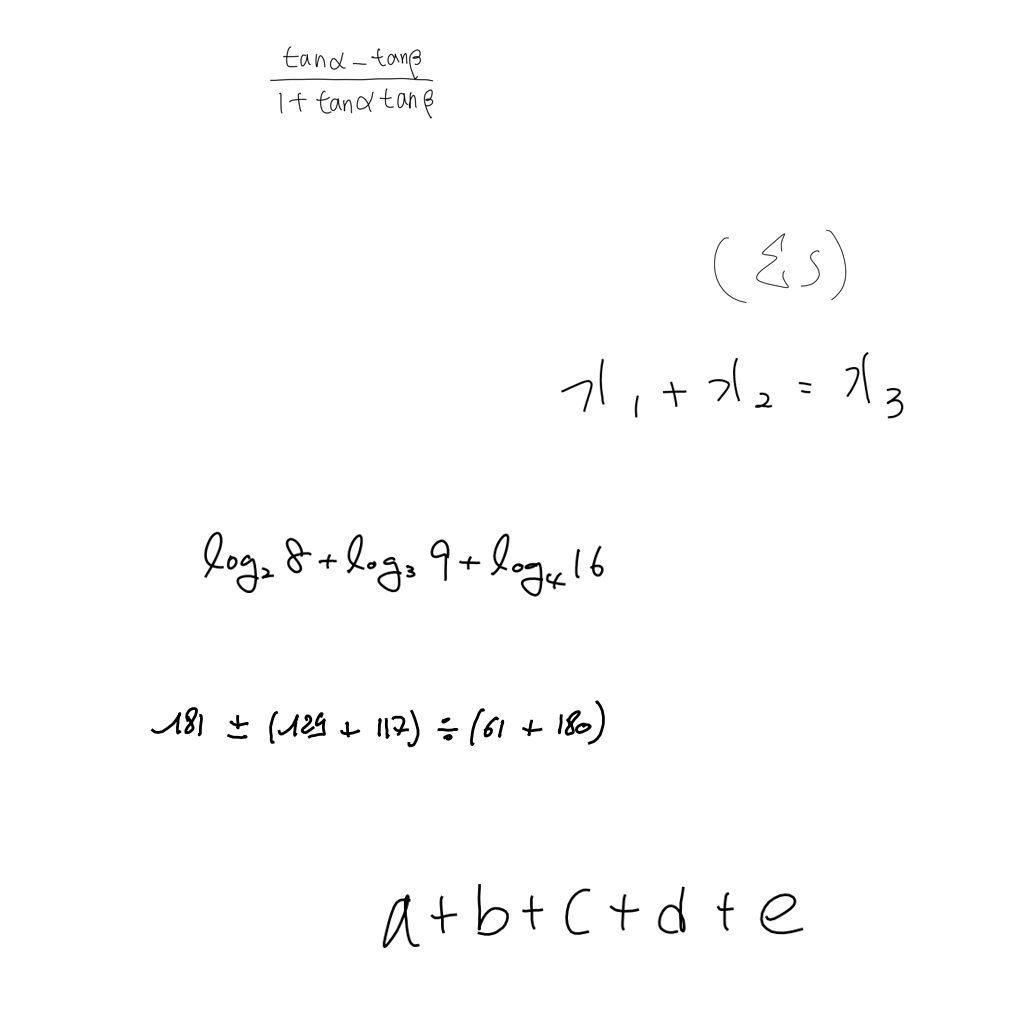 \frac{\tan\alpha - \tan\beta}{1 + \tan\alpha \tan\beta}
(\Sigma s)
x_1 + x_2 = x_3
\log_2 8 + \log_3 9 + \log_4 16
181 ± (129 + 117) ÷ (61 + 180)
a + b + c + d + e